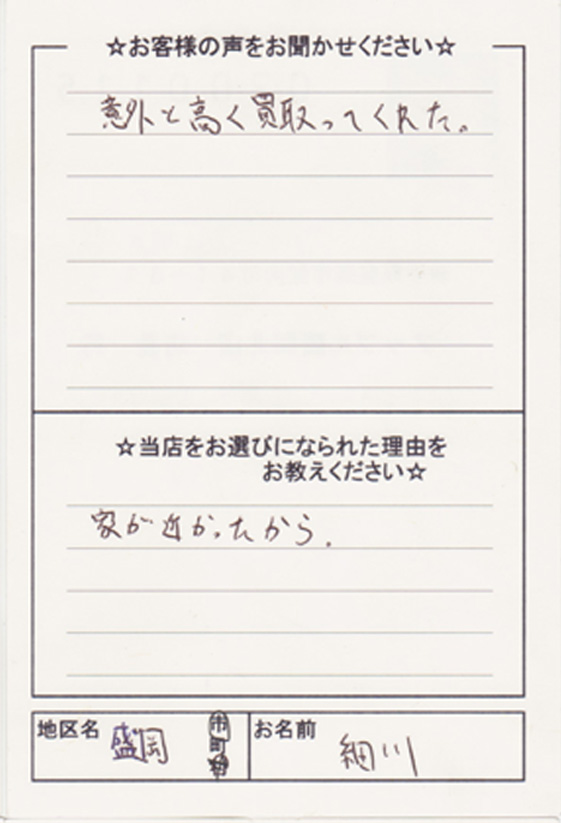 ☆お客様の声をお聞かせください☆
意外と高く買取ってくれた。
☆当店をお選びになられた理由を
お教えください☆
家が近かったから.
地区名 盛岡 市町村 お名前 細川